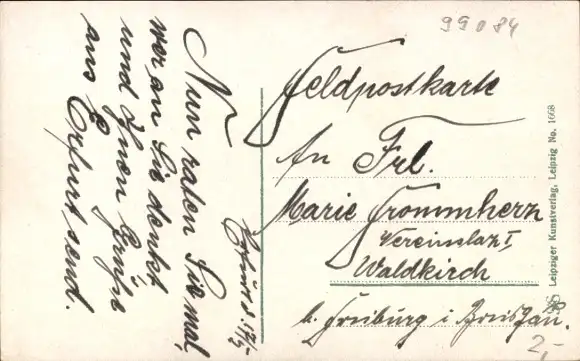 99084
Nun raten Sie mal,
wer an Sie denkt
und Ihnen Grüße
aus E
Erfurt send.
Erfurt d.
Feldpostkarte
An Frl.
Marie Frommherz
Waldkirch
b. Freiburg i Breisgau.
2,-
Leipziger Kunstverlag, Leipzig No. 1668